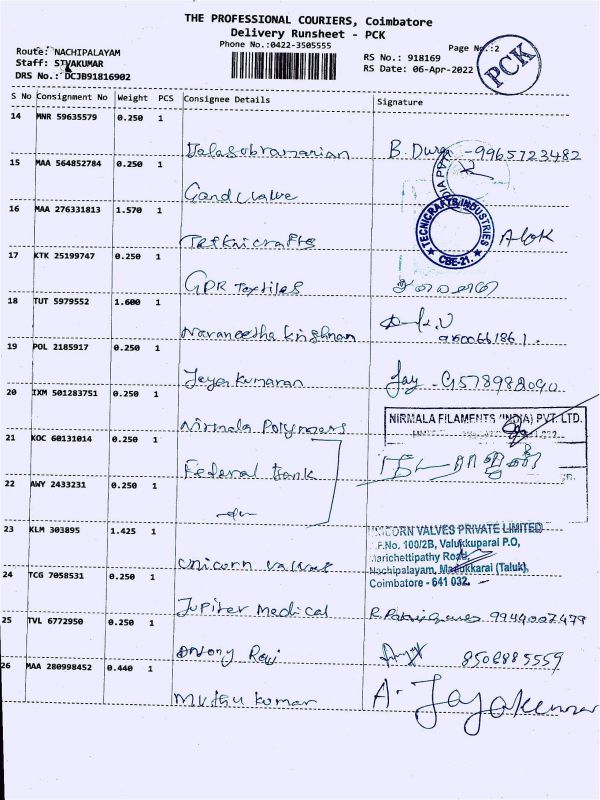 THE PROFESSIONAL COURIERS, Coimbatore
Delivery Runsheet - PCK
Phone No.:0422-3505555
Page No.:2
PCK
Route: NACHIPALAYAM
Staff: SIVAKUMAR
DRS No.: DCJB91816902
RS No.: 918169
RS Date: 06-Apr-2022
S No Consignment No Weight PCS Consignee Details Signature
14 MNR 59635579 0.250 1
Balasubramanian B. Durga -9965723482
15 MAA 564852784 0.250 1
Gand valve
16 MAA 276331813 1.570 1
TECNICRAFTS INDUSTRIES
CBE-21.
Teknicrafts Alok
17 KTK 25199747 0.250 1
GPR Textiles
18 TUT 5979552 1.600 1
Navaneetha krishnan
19 POL 2185917 0.250 1
Jeyakumaran Jay
20 IXM 501283751 0.250 1
NIRMALA FILAMENTS (INDIA) PVT. LTD.
Nirmala Polymers
21 KOC 60131014 0.250 1
Federal Bank
22 AWY 2433231 0.250 1
23 KLM 303895 1.425 1
UNICORN VALVES PRIVATE LIMITED
S.F.No. 100/2B, Valukkuparai P.O,
Marichettipathy Road,
Nachipalayam, Madukkarai (Taluk),
Coimbatore - 641 032.
Unicorn valves
24 TCG 7058531 0.250 1
Jupiter Medical 9944007479
25 TVL 6772950 0.250 1
Antony Ravi 8508885559
26 MAA 280998452 0.440 1
Muthu kumar A. Jayakumar